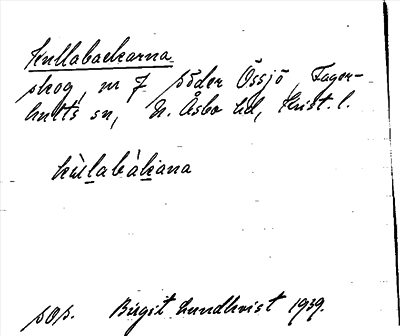 Kullabackarna
skog, nr 7 söder Össjö, Fager-
hults sn, N. Åsbo hd, Krist. l.
kùllabàkana
sOs. Birgit Lundkvist 1939.